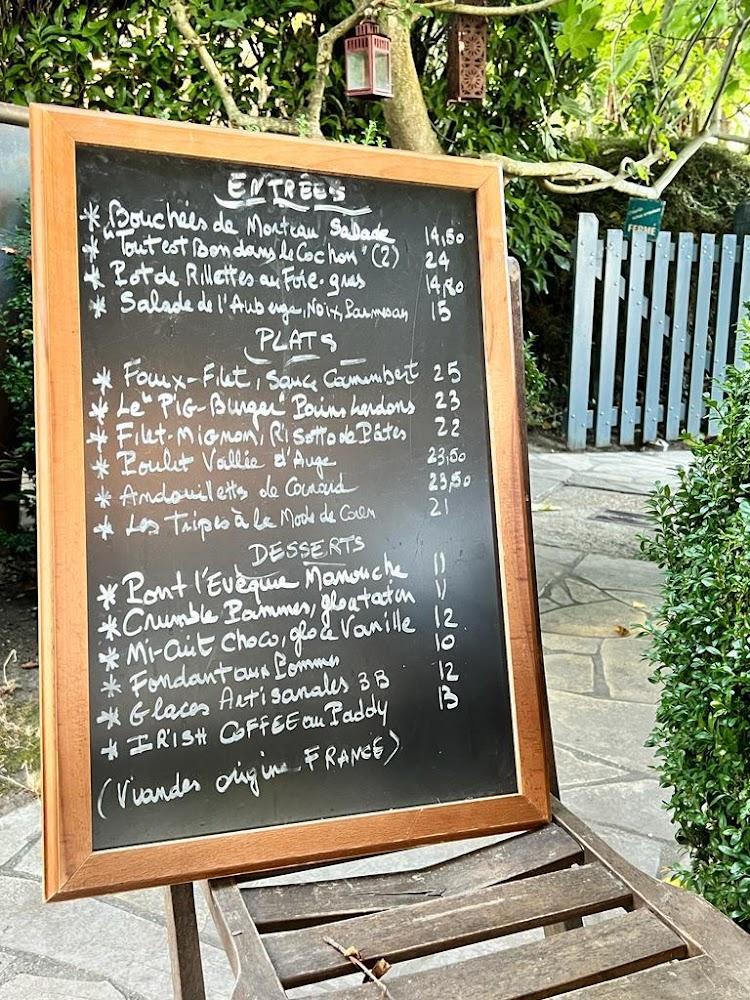 ENTRÉES
* Bouchées de Morteau Salade 14,50
* "Tout est Bon dans le Cochon" (2) 24
* Pot de Rillettes au Foie-gras 14,80
* Salade de l'Auberge, Noix, Parmesan 15
PLATS
* Faux-Filet, Sauce Camembert 25
* Le "Pig-Burger" Poins Lardons 23
* Filet-Mignon, Risotto de Pâtes 22
* Poulet Vallée d'Auge 23,50
* Andouillette de Canard 23,50
* Les Tripes à la Mode de Caen 21
DESSERTS
* Pont l'Evêque Manouche 11
* Crumble Pommes, glacatatin 11
* Mi-Cuit Choco, glace Vanille 12
* Fondant aux Pommes 10
* Glaces Artisanales 3B 12
* IRISH COFFEE au Paddy 13
(Viandes origine FRANCE)
FERMÉ